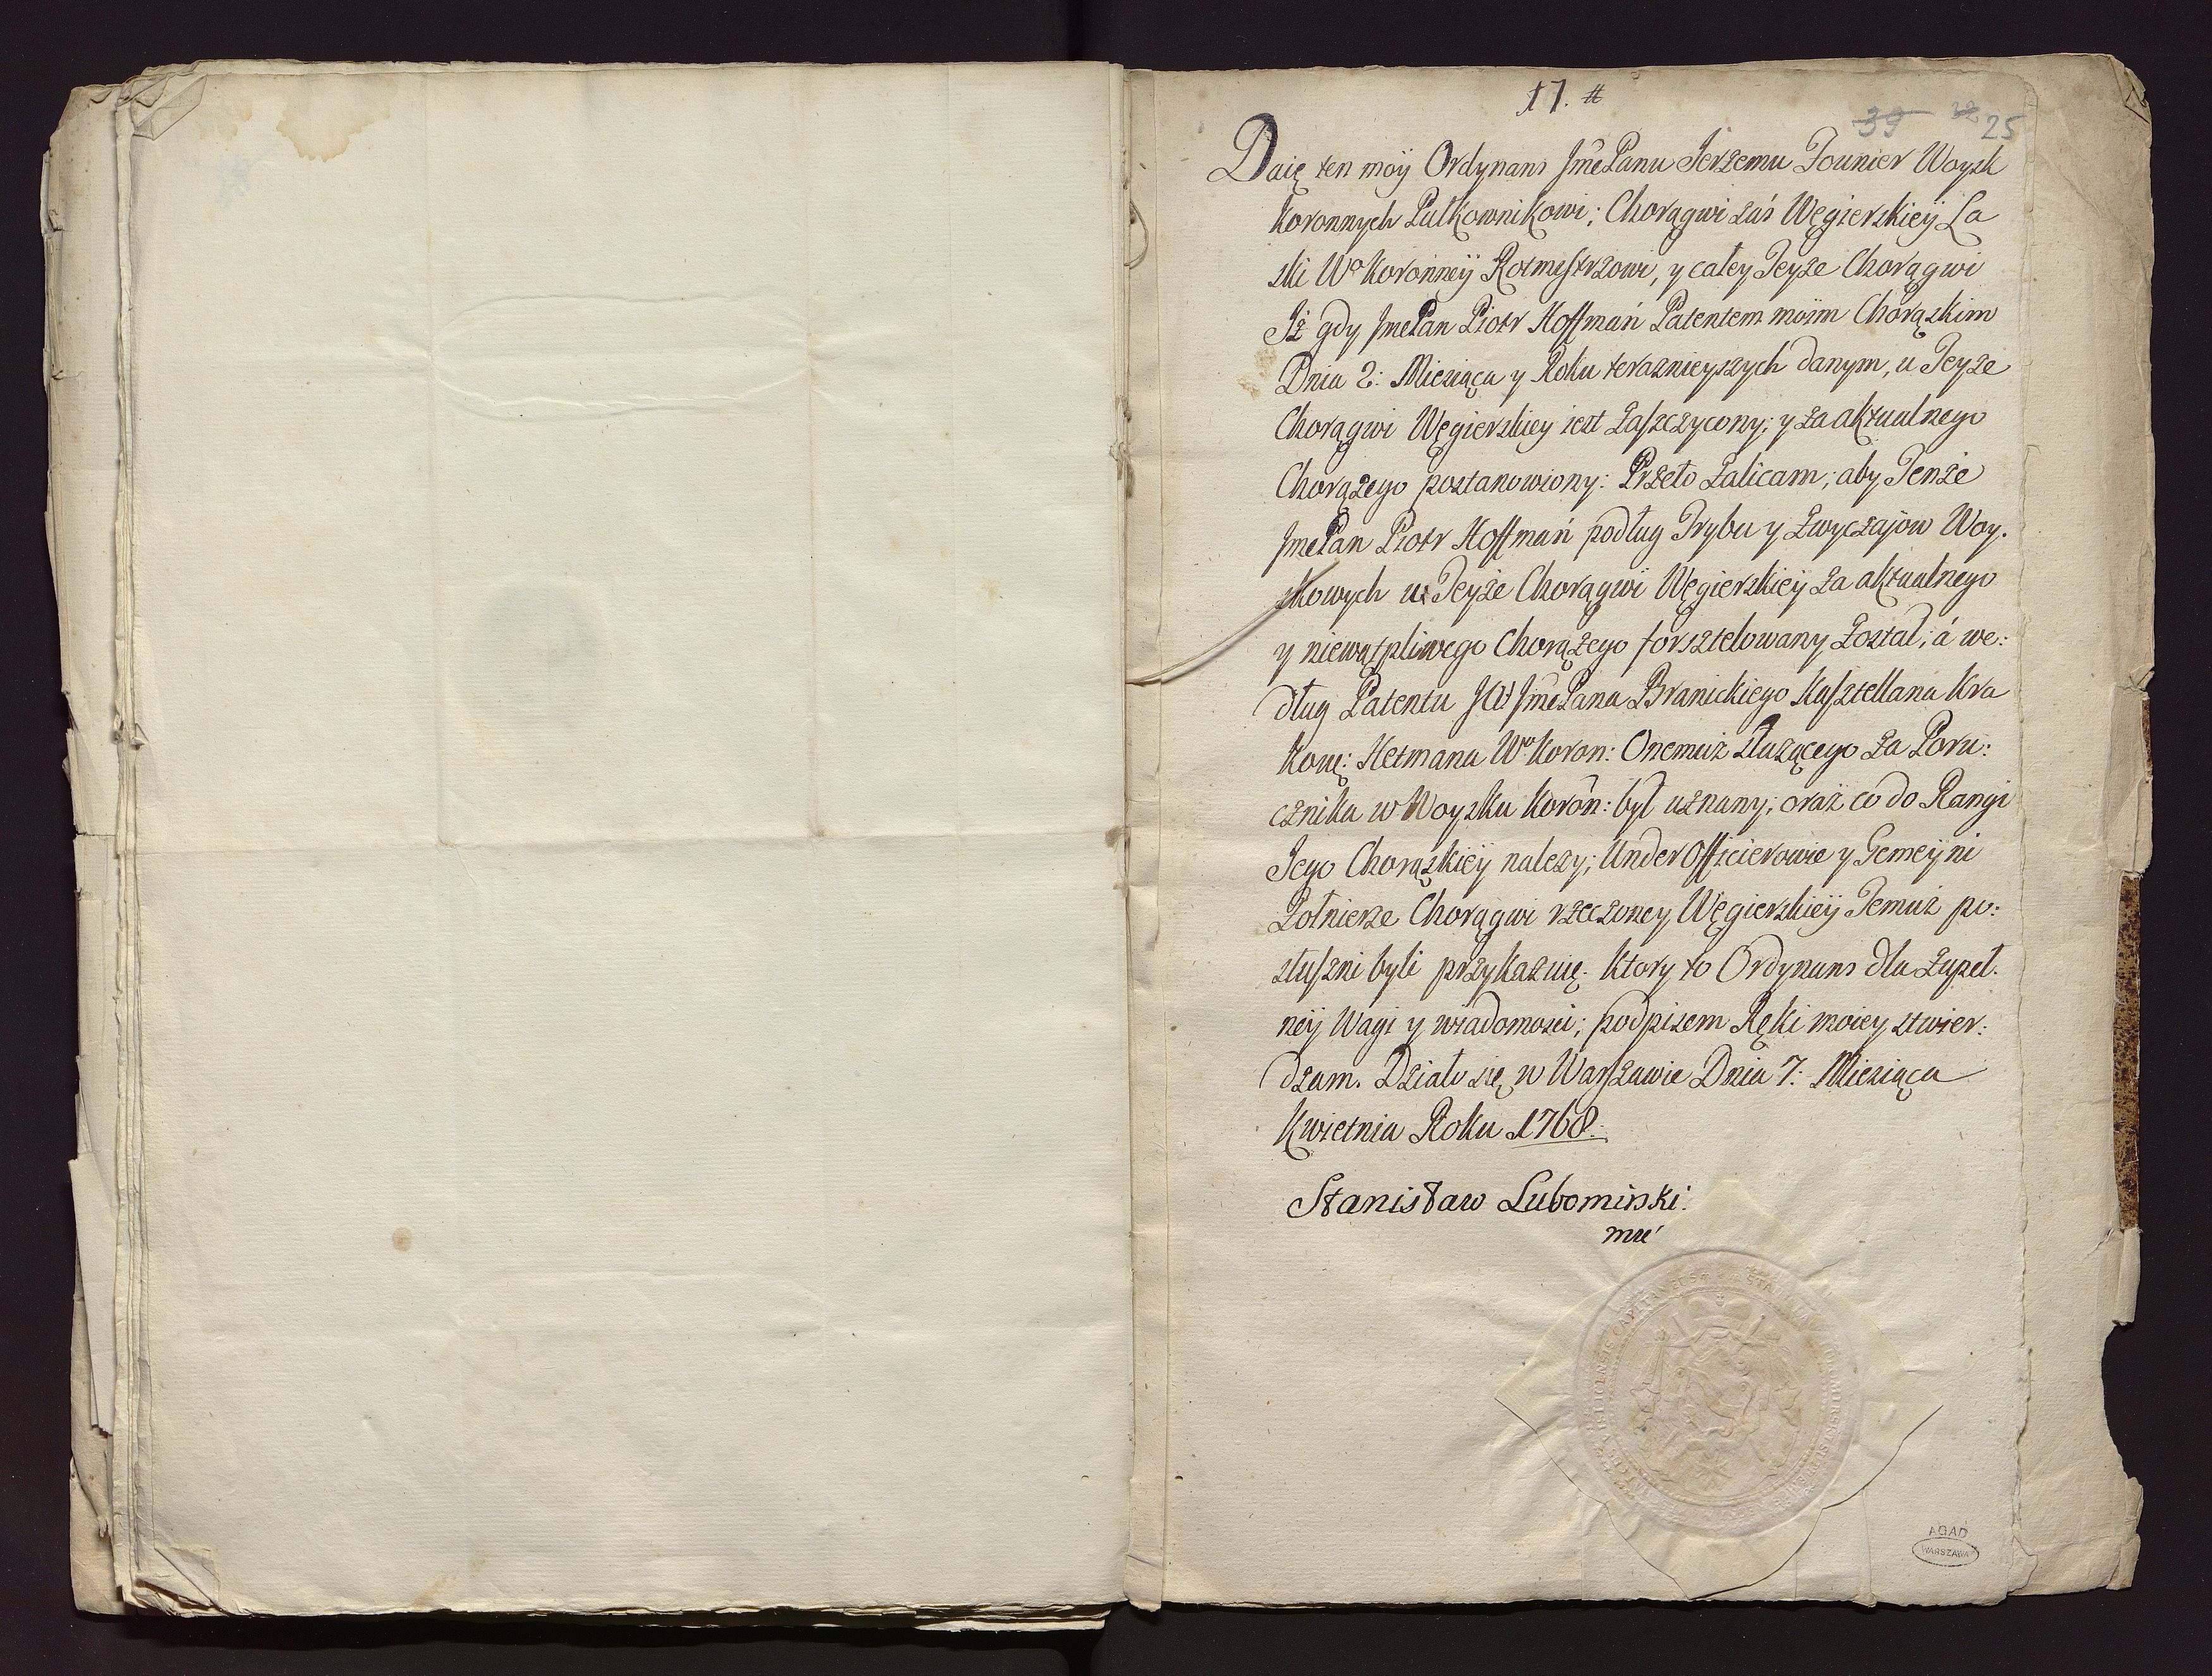 17. #
39 22 25
Daię ten moÿ Ordynans JmćPanu Jerzemu Tounier Woysk
Koronnych Pułkownikowi; Chorągwi zaś Węgierskieÿ La
ski Wo Koronneÿ Rotmistrzowi, y całey Teyże Chorągwi
Iż gdy JmćPan Piotr Hoffmań Patentem moim Chorąskim
Dnia 2: Miesiąca y Roku teraznieyszych danym, u Teyże
Chorągwi Węgierskiey iest Zaszczycony; y za aktualnego
Chorążego postanowiony: Przeto Zalicam; aby Tenże
JmćPan Piotr Hoffmań podług Trybu y Zwyczajow Woy.
skowych u Teyże Chorągwi Węgierskieÿ za aktualnego
y niewątpliwego Chorążego forsztelowany Został; á we:
dług Patentu JW JmćPana Branickiego Kasztellana Kra
Kow: Hetmana Wo Koron: Onemuż służącego za Poru:
cznika w Woysku Koron: był uznany; oraz co do Rangi
Jego Chorąskieÿ nalezy; UnderOfficierowie y Gemeÿni
Żołnierze Chorągwi rzeczoney Węgierskieÿ Temuż po:
słuszni byli przykazuię. Ktory to Ordynans dla Zupeł.
neÿ Wagi y wiadomosci; podpisem Ręki moiey ztwier:
dzam. Działo się w Warszawie Dnia 7: Miesiąca
Kwietnia Roku 1768.
Stanisław Lubomirski:
AGAD
WARSZAWA